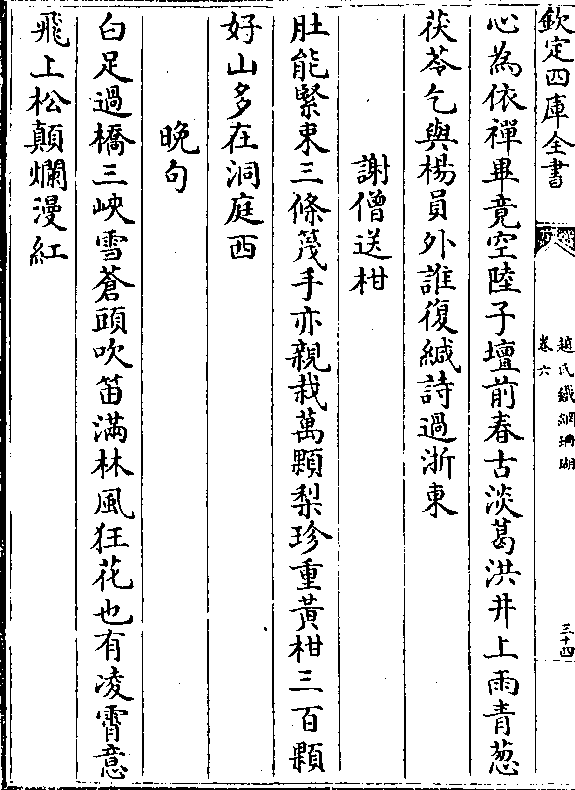 欽定四庫全書
趙氏鐵網珊瑚
卷六
三十四
心為依禪畢竟空陸子壇前春古淡葛洪井上雨青葱
茯苓乞與楊員外誰復緘詩過浙東
謝僧送柑
肚能緊束三條篾手亦親栽萬顆梨珍重黃柑三百顆
好山多在洞庭西
晚句
白足過橋三峽雪蒼頭吹笛滿林風狂花也有凌霄意
飛上松顛爛漫紅